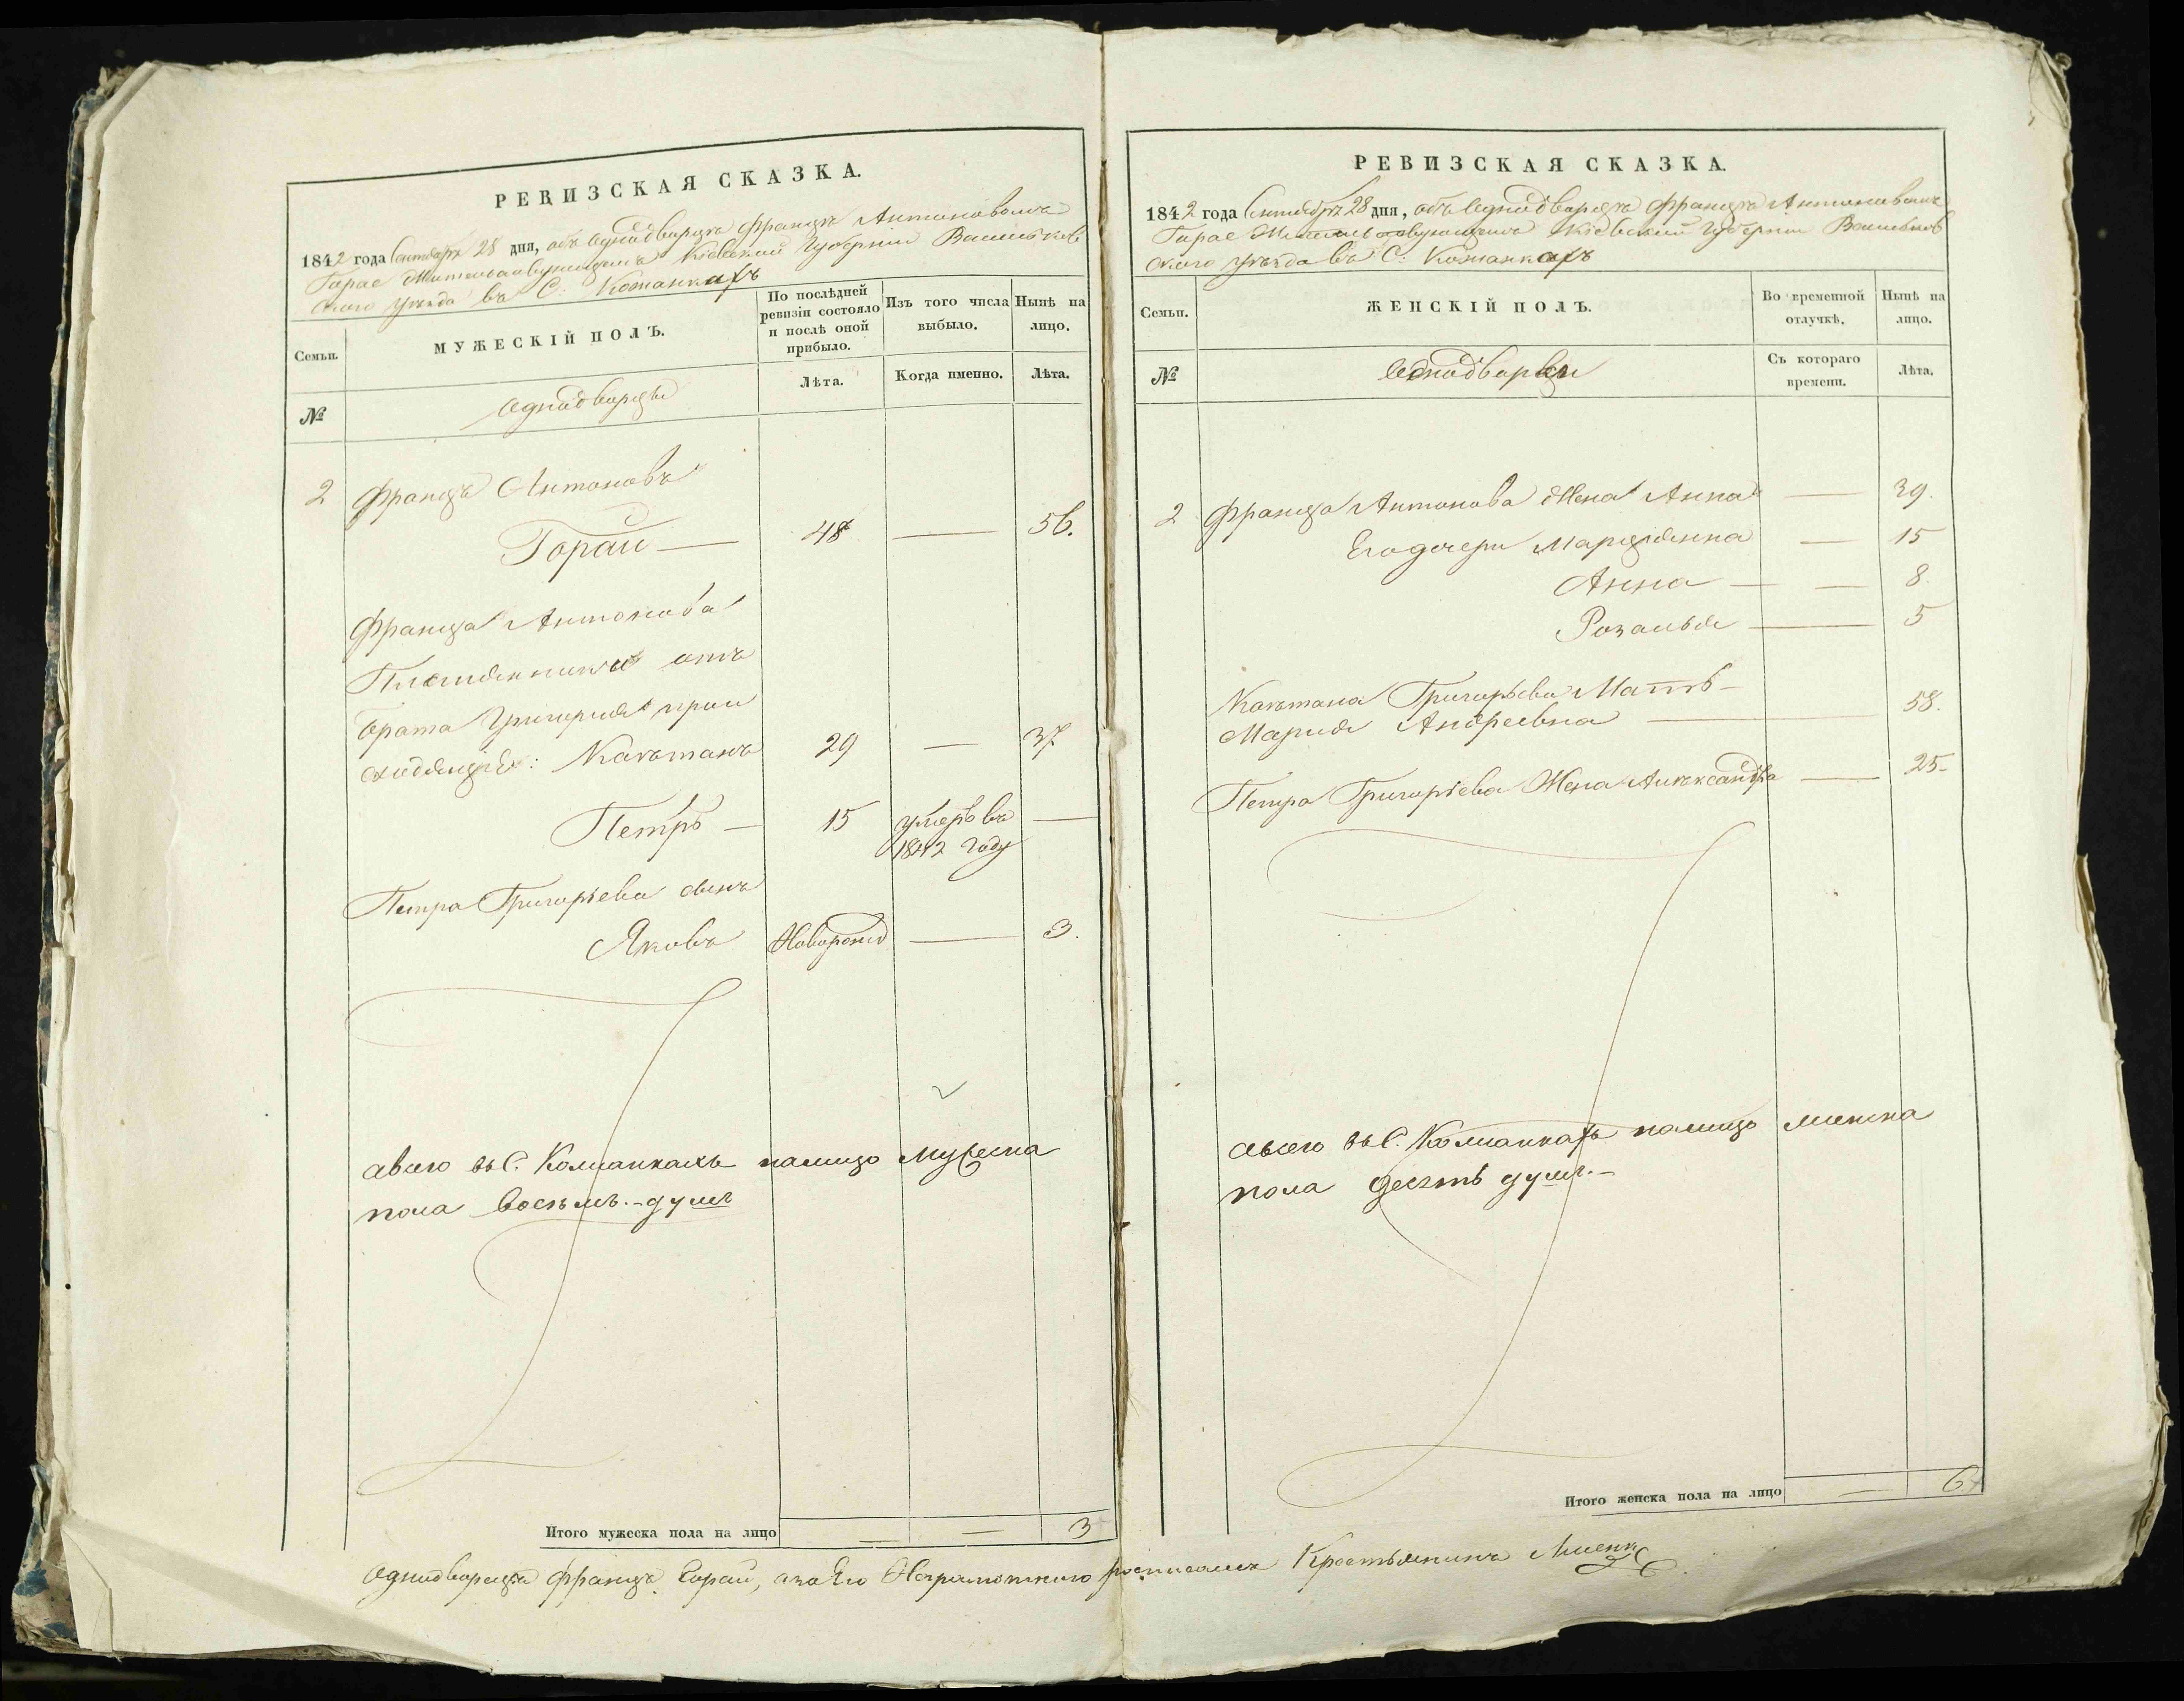 РЕВИЗСКАЯ СКАЗКА.
1842 года Сентября 28 дня, объ Однодворцѣ Францѣ Антоновомъ
Горае Жительствующемъ Кіевской Губерніи Васильков
скаго уѣзда въ С. Кожанкахъ
Семьи.
МУЖЕСКІЙ ПОЛЪ.
По послѣдней
ревизіи состояло
и послѣ оной
прибыло.
Изъ того числа
выбыло.
Нынѣ на
лицо.
№
Однодворцы
Лѣта.
Когда именно.
Лѣта.
2 Францъ Антоновъ
Горай — 48 — 56.
Франца Антонова
Племянники отъ
брата Григорія прои
сходящіе: Каэтанъ 29 — 37
Петръ — 15 умеръ въ —
1842 году
Петра Григорьева сынъ
Яковъ Новорожд — 3.
всего въ С. Кожанкахъ налицо мужеска
пола восемь.- душъ
Итого мужеска пола на лицо — — 3
РЕВИЗСКАЯ СКАЗКА.
1842 года Сентября 28 дня, объ Однодворцѣ Францѣ Антоновомъ
Горае Жительствующемъ Кіевской Губерніи Васильков
скаго уѣзда въ С. Кожанкахъ
Семьи.
ЖЕНСКІЙ ПОЛЪ.
Во временной
отлучкѣ.
Нынѣ на
лицо.
№
Однодворки
Съ котораго
времени.
Лѣта.
2 Франца Антонова Жена Анна — 39.
Его дочери Марціянна — 15
Анна — — 8
Розалья — 5
Каэтана Григорьева Мать-
Марія Андреевна — 58.
Петра Григорьева Жена Александра — 25-
всего въ С. Кожанкахъ налицо женска
пола десять душъ.-
Итого женска пола на лицо — 6
Однодворецъ Францъ Горай, а за Его Неграмотнаго росписался Крестьянинъ